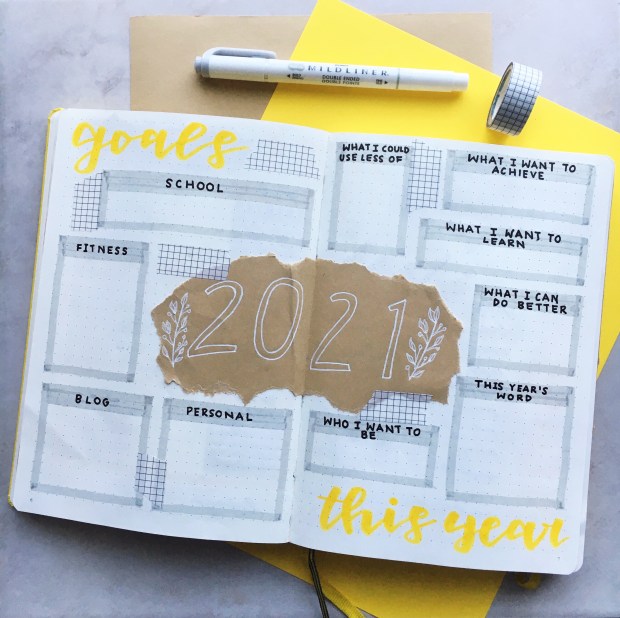 MILDLINER
DOUBLE ENDED
goals
SCHOOL
FITNESS
BLOG
PERSONAL
2021
WHAT I COULD
USE LESS OF
WHAT I WANT TO
ACHIEVE
WHAT I WANT TO
LEARN
WHAT I CAN
DO BETTER
THIS YEAR'S
WORD
WHO I WANT TO
BE
this year